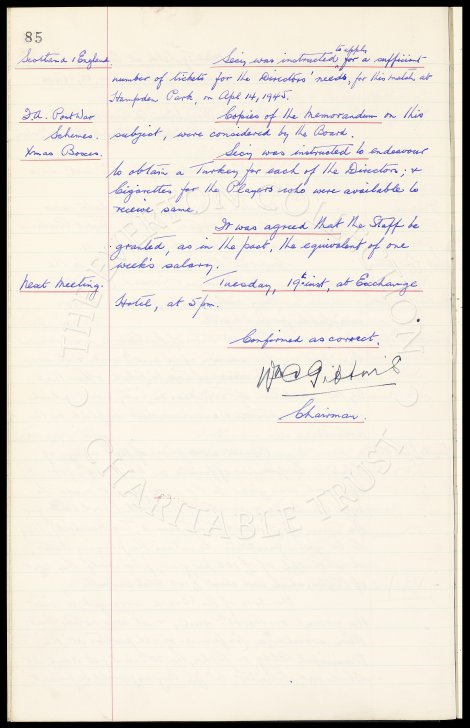 85
Scotland v England. Secy. was instructed to apply for a sufficient
number of tickets for the Directors' needs, for this match at
Hampden Park, on Apl 14, 1945.
F.A. Post War Copies of the Memorandum on this
Schemes. subject, were considered by the Board.
Xmas Boxes. Secy. was instructed to endeavour
to obtain a Turkey for each of the Directors; &
Cigarettes for the Players who were available to
receive same.
It was agreed that the Staff be
granted, as in the past, the equivalent of one
week's salary.
Next Meeting. Tuesday, 19th inst, at Exchange
Hotel, at 5pm.
Confirmed as correct.
Wm C Gibbins
Chairman.
THE EVERTON COLLECTION
CHARITABLE TRUST